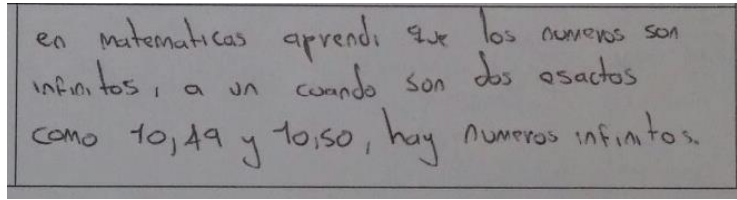 en matematicas aprendi que los numeros son
infinitos, a un cuando son dos esactos
como 10,49 y 10,50, hay numeros infinitos.